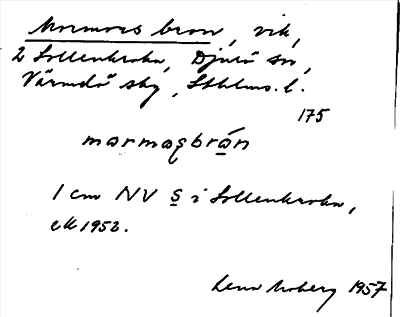 Mormors bron, vik,
2 Sollenkroka, Djurö sn,
Värmdö skg, Sthlms. l.
175
marmaʂbrån
1 cm NV S i Sollenkroka,
ek 1952.
Lena Moberg 1957